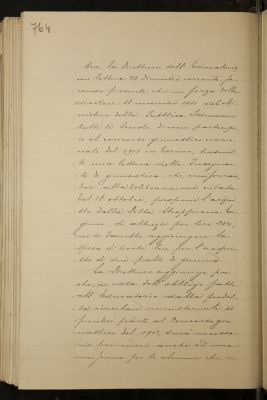 764
Ora, la Direttrice dell'Educatorio
con lettera 23 Dicembre corrente, fa-
cendo presente che in forza della
circolare 18 novembre 1910, del Mi-
nistero della Pubblica Istruzione
tutte le Scuole devono partecipa-
re al concorso ginnastico nazio-
nale del 1911 in Torino, trasmet-
te una lettera della Insegnan-
te di ginnastica, che, uniforman-
dosi alla deliberazione citata
del 18 ottobre, propone l'acqui-
sto dalla Ditta
di attrezzi per Lire 204,
ma
spesa di poche lire per l'acqui-
sto di due palle di gomma.
La Direttrice aggiunge poi
che, in vista dell'obbligo fatto
all'Educatorio dalla predet-
ta circolare ministeriale di
prender parte al Concorso gin-
nastico del 1911, sarà necessa-
rio provvedere anche ad una
uniforme per le alunne che